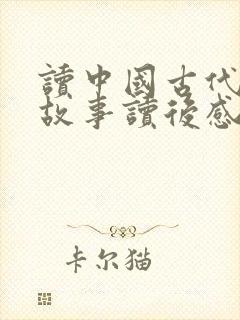 讀中國古代
故事讀後感
卡尔猫